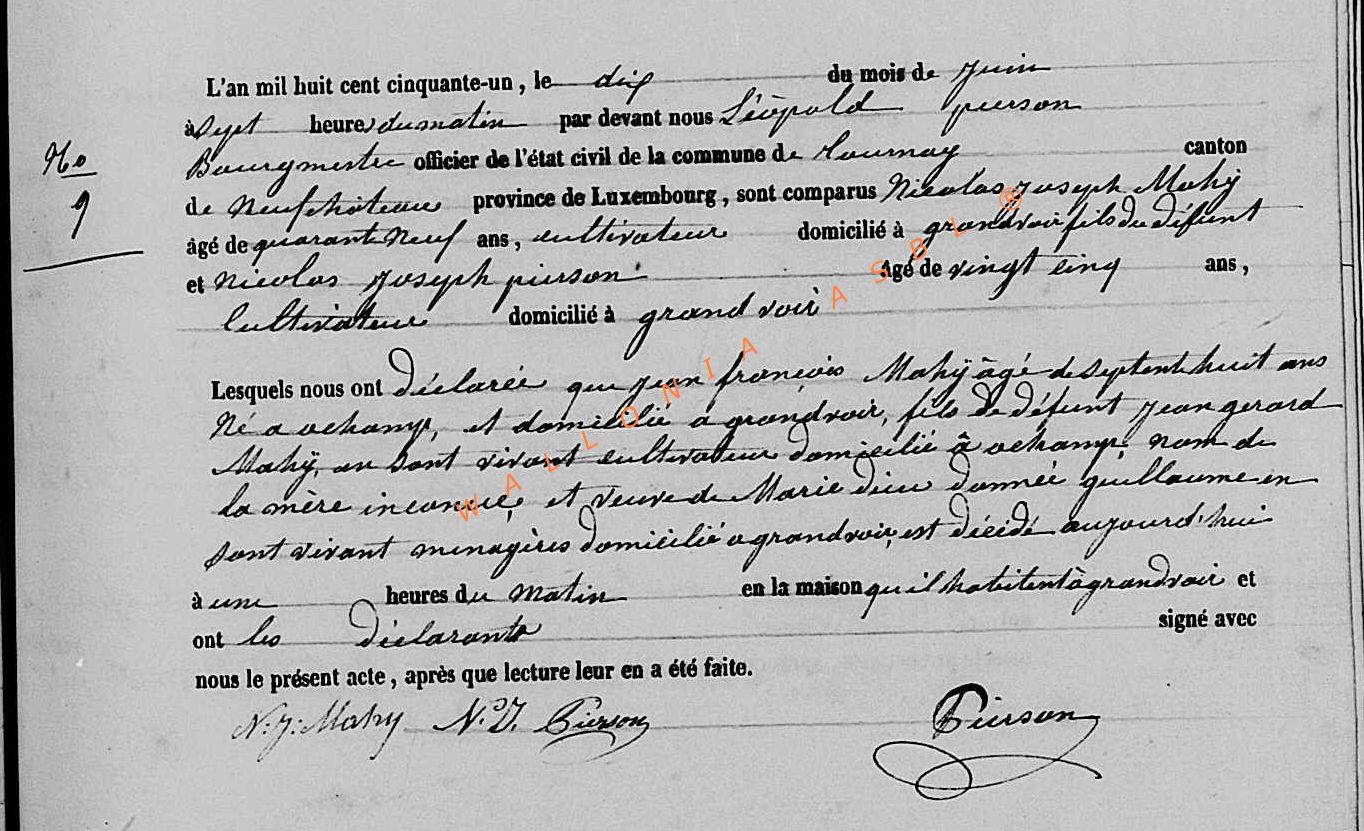 L'an mil huit cent cinquante-un, le dix du mois de Juin
à Sept heures du matin par devant nous Léopold pierson
No
9
Bourgmestre officier de l'état civil de la commune de Tournay canton
de Neufchateau province de Luxembourg, sont comparus Nicolas Joseph Mahÿ
âgé de quarante Neuf ans, cultivateur domicilié à grandvoir fils du défunt
et Nicolas Joseph pierson âgé de vingt cinq ans,
Cultivateur domicilié à grand voir
Lesquels nous ont déclarée que jean françois Mahÿ âgé de septente huit ans
Né a ochamp, et domicilié a grandvoir, fils de défunt jean gerard
Mahÿ, en sont vivant cultivateur domicilié â ochamp, nom de
la mère inconnue, et veuve de Marie dieu donnée guillaume en
sont vivant menagères domicilié a grandvoir, est décédé aujourd'hui
à une heures du matin en la maison qu'il habitent à grandvoir et
ont les déclarants signé avec
nous le présent acte, après que lecture leur en a été faite.
N: J: Mahy N. J. Pierson Pierson
WALLONIA ASBL ®